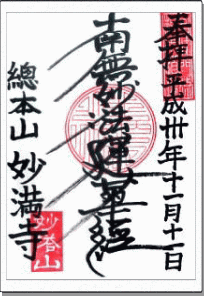 奉拝 平成卅年十一月十一日
南無妙法蓮華経
總本山 妙満寺
妙塔山